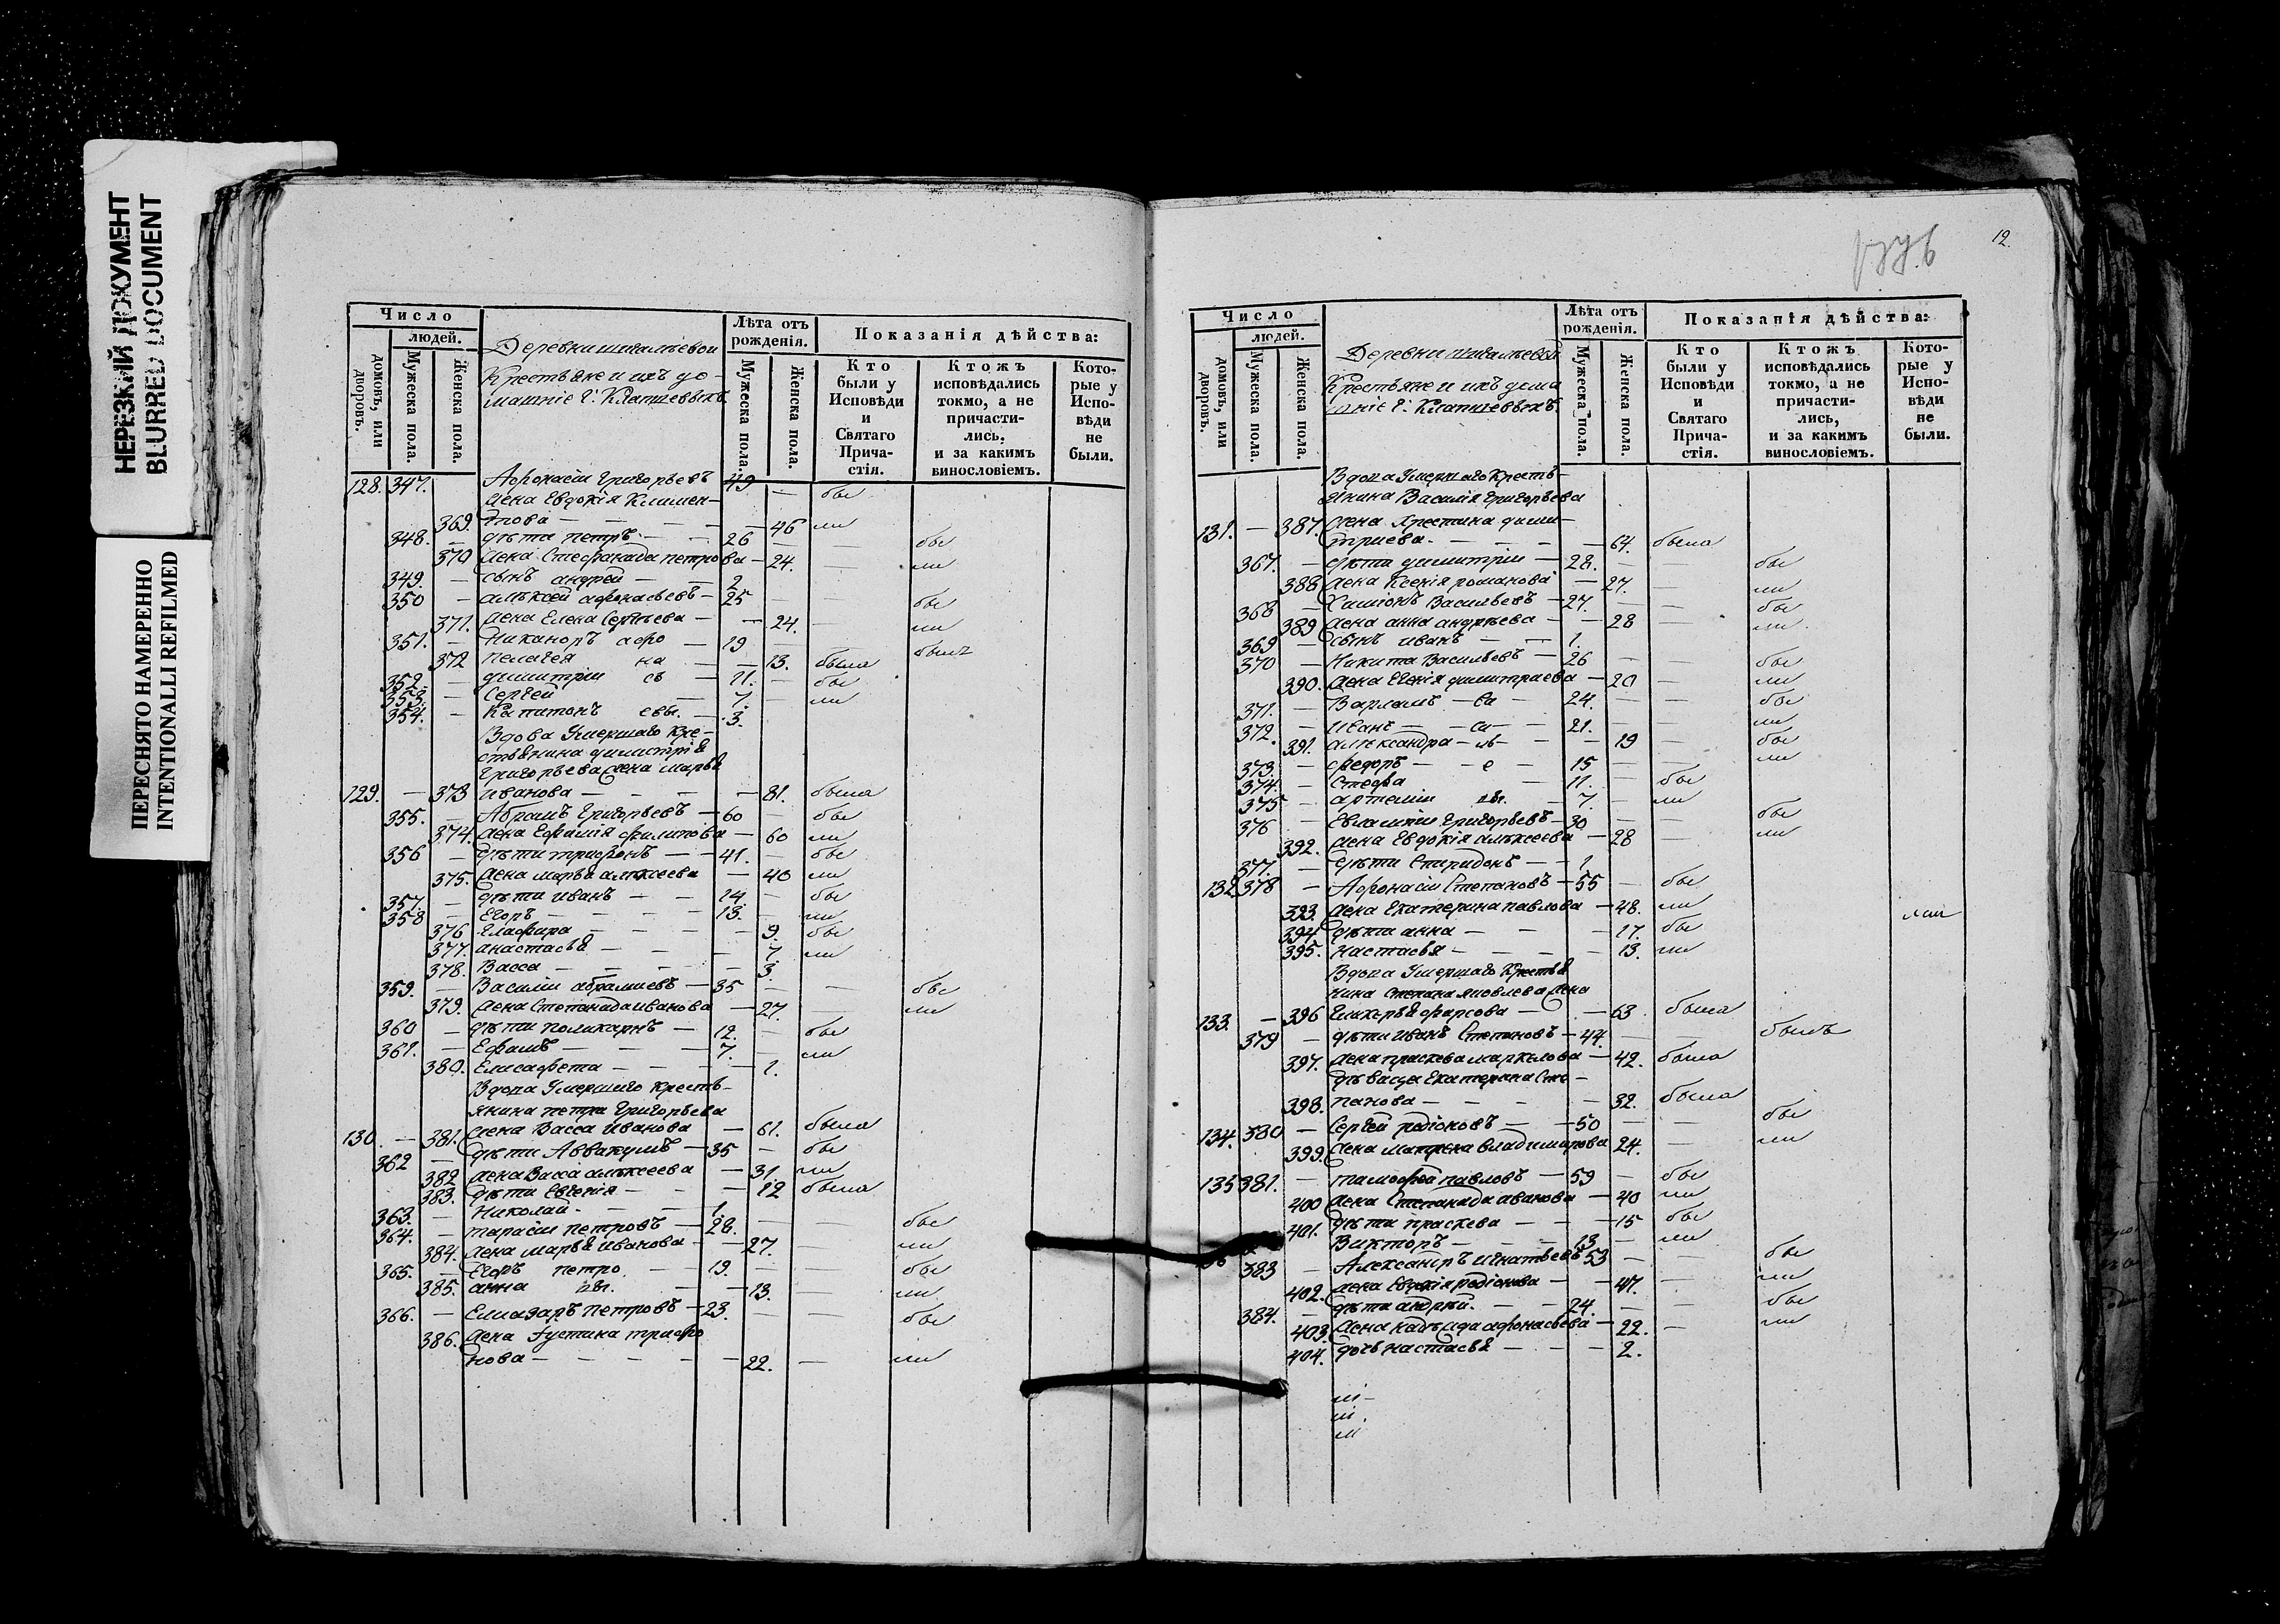 НЕРЕЗКИЙ ДОКУМЕНТ
BLURRED DOCUMENT
ПЕРЕСНЯТО НАМЕРЕННО
INTENTIONALLI REFILMED
Число
людей.
домовъ, или дворовъ.
Мужеска пола.
Женска пола.
Крестьяне и ихъ до-
машніе
Лѣта отъ рожденія.
Мужеска пола.
Женска пола.
Показанія дѣйства:
Кто были у Исповѣди и Святаго Прича-стія.
Ктожъ исповѣдались токмо, а не причасти-лись, и за какимъ винословіемъ.
Кото-рые у Испо-вѣди не были.
128. 347. Афонасіи Григорьевъ 49 — бы
жена Евдокія Климен-
369. това — 46 ли
348. — дѣти петръ — 26 — — бы
370 жена Стефанида петрова — 24. — ли
349. — сынъ андрей — 2
350 — алѣксей афонасьевъ — 25 — — бы
371. жена Елена Сергѣева — — 24. — ли
351. — Никаноръ афо — 19 — — былъ
372 пелагея на — — 13. была
352. — димитрій сь — 11. — бы
353. — Сергей — 7. — ли
354. — Капитонъ евы. — 3.
Вдова Умершаго Кре-
стьянина димитрія
Григорьева жена марья
129. — 373 иванова — — 81. была
355. — Абрамъ Григорьевъ — 60 — бы
374. жена Ефимія филипова — 60 ли
356 — дѣти трифонъ — 41. — бы
375. жена марья алѣксеева — 40 ли
357. — дѣти иванъ — 14. — бы
358 — Егоръ — 13. — ли
376 Глафира — — 9. бы
377. анастасья — — 7 ли
378. Васса — — 3.
359. — Василіи абрамиевъ — 35 — — бы
379. жена Степанида иванова — 27. — ли
360 — дѣти поликарпъ — 12. — бы
361. — Ефимъ — 7. — ли
380. Елисафета — — 1.
Вдова Умершаго Кресть-
янина петра Григорьева
130. — 381. жена Васса Иванова — 61. была
362 — дѣти Аввакумъ — 35 — бы
382 жена Васса алѣксеева — 31 ли
383. дѣти Евгенія — — 12 была
363. — Николай. — 1.
364. — тарасіи петровъ — 28. — — бы
384. жена марья Иванова — — 27. — ли
365. — Егоръ петро — 19. — — бы
385. анна вы. — — 13. — ли
366. — Елиазаръ петровъ — 23. — — бы
386. жена Густина трифо
нова — — 22. — ли
12.
Число
людей.
домовъ, или дворовъ.
Мужеска пола.
Женска пола.
Крестьяне и ихъ дома
шніе
Лѣта отъ рожденія.
Мужеска пола.
Женска пола.
Показанія дѣйства:
Кто были у Исповѣди и Святаго Прича-стія.
Ктожъ исповѣдались токмо, а не причасти-лись, и за какимъ винословіемъ.
Кото-рые у Испо-вѣди не были.
Вдова Умершаго Кресть-
янина Василія Григорьева
131. — 387. жена Христина дими-
тріева. — — 64. была
367. — дѣти димитріи — 28. — — бы
388 жена Ксенія романова — 27. — ли
368 — Василіевъ — 27. — — бы
389 жена анна андрѣева — — 28 — ли.
369 — сынъ иванъ — 1.
370 — Никита Васильевъ — 26 — — бы
390. жена Евгенія димитриева — 20 — ли
371. — Варламъ — 24. — — бы
372. — Иванъ — 21. — — ли
391. алѣксандра — — 19 — бы
373. — федоръ — е — 15 — — ли
374. — Стефа 11. — бы
375 — артеміи вы. — 7. — ли
376 — Евлампіи Григорьевъ — 30 — — бы
392. жена Евдокія алѣксеева — 28 — ли
377. — дѣти Спиридонъ — 1
132 378 — Афонасіи Степановъ — 55 — бы
393. жена Екатерина павлова — 48. ли
394. дѣти анна — — 17. бы
395. настасья — — 13. ли
Вдова Умершаго Крестья
нина Степана яковлева жена
133. — 396 Гликерья фирсова — — 63. была
379 — дѣти иванъ Степановъ — 44. — былъ
397. жена праскева маркелова — 42. была
дѣвица Екатерина Сте-
398. панова — — 32. была
134. 380 — Сергей родіоновъ — 50 — — бы
399. жена матрена владимирова 24. — ли
135 381. — тимофей павловъ — 59 — бы
400 жена Степанида иванова — 40 ли
401. дѣти праскева — — 15 бы
Викторъ — 13 — ли
383 — Александръ игнатьевъ 53 — — бы
402. жена Евдокія родіонова — — 47. — ли
384. — дѣти андрей. — 24. — — бы
403. жена надѣжда афонасьева — 22. — ли
404. дочь настасья — — 2.